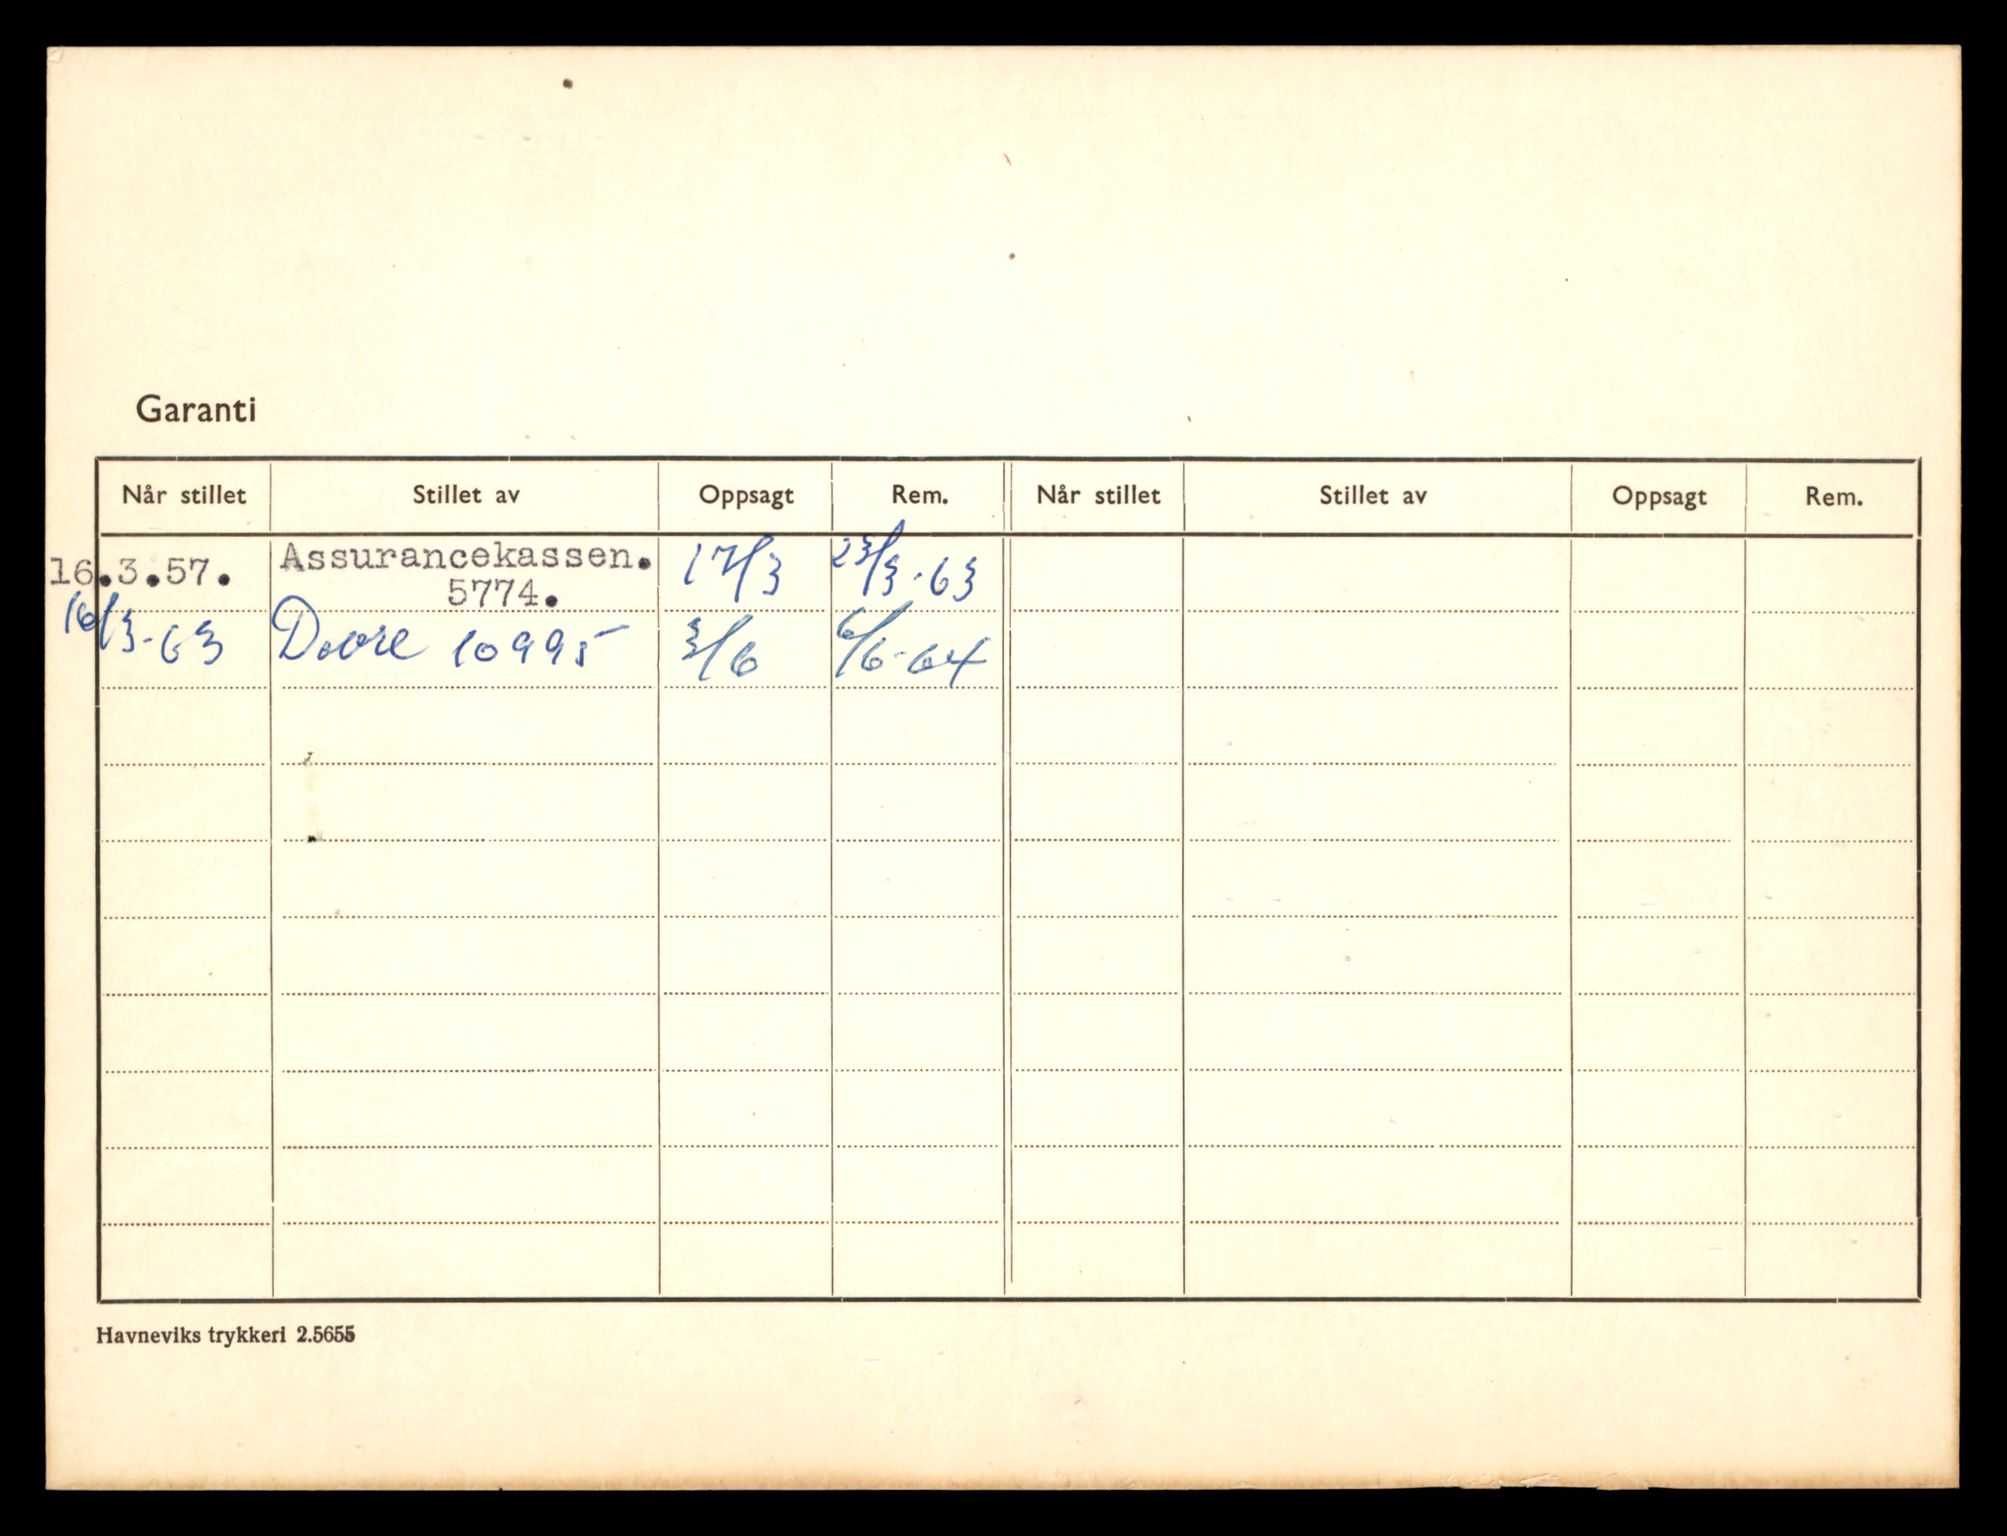 Garanti
Når stillet Stillet av Oppsagt Rem. Når stillet Stillet av Oppsagt Rem.
16.3.57. Assurancekassen. 17/3 23/3-63
5774.
16/3-63 Dovre 10995 3/6 6/6-64
Havneviks trykkeri 2.5655